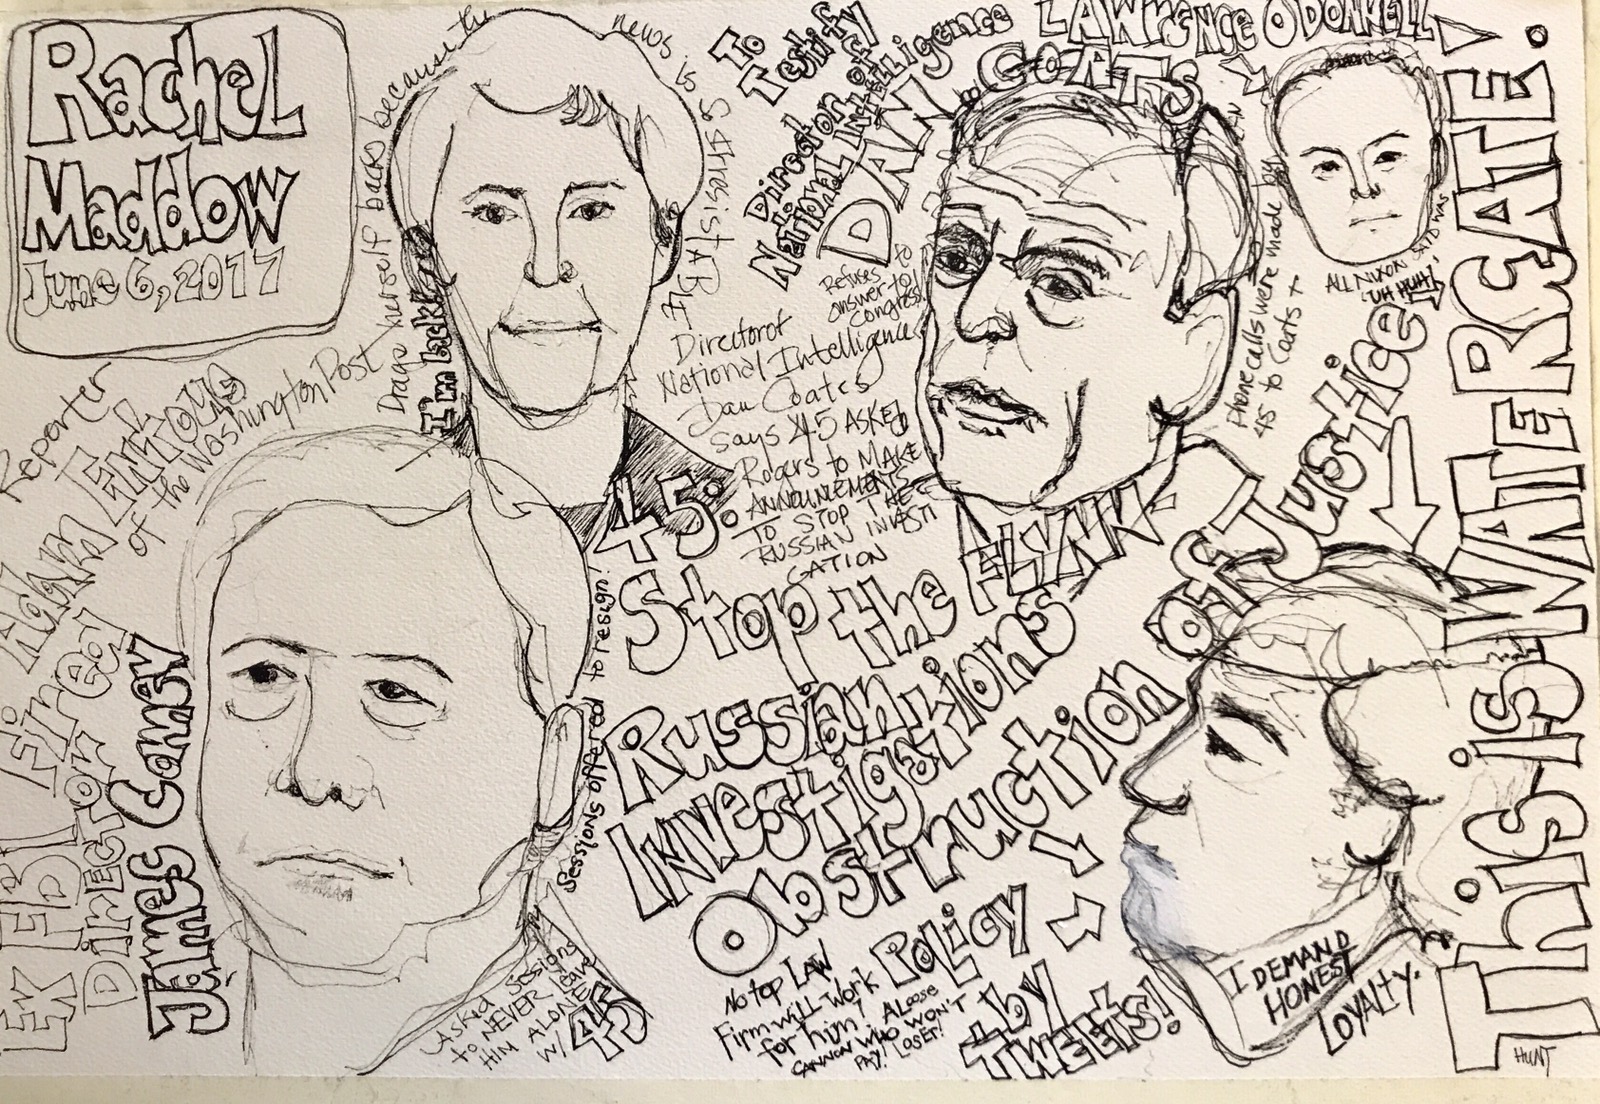 Rachel
Maddow
June 6, 2017
Drags herself back because the
news is so #resist AB4
I'm back!
To
Testify
Director of
National Intelligence
DAN COATS
Refuses to
answer to
Congress!
LAWRENCE O'DONNELL
Phone calls were made by
45 to Coats +
ALL NIXON SAID WAS
"UH HUH!"
Director of
National Intelligence
Dan Coates
says 45 ASKED
Rogers to MAKE
ANNOUNCEMENTS
TO STOP THE
RUSSIAN INVESTI
GATION
45:
Stop the FLYNN-
Russian
Investigations
Obstruction of Justice!
Reporter
Adam Entous
of the Washington Post
Ex FBI Fired
Director
James Comey
Sessions offered to resign!
Asked Sessions
to NEVER leave
HIM ALONE
w/ 45
No top LAW
Firm will work
for him!
A Loose
CANNON WHO WON'T
PAY!
POLICY
by
TWEETS!
I DEMAND
HONEST
LOYALTY.
This is WATERGATE!
HUNT